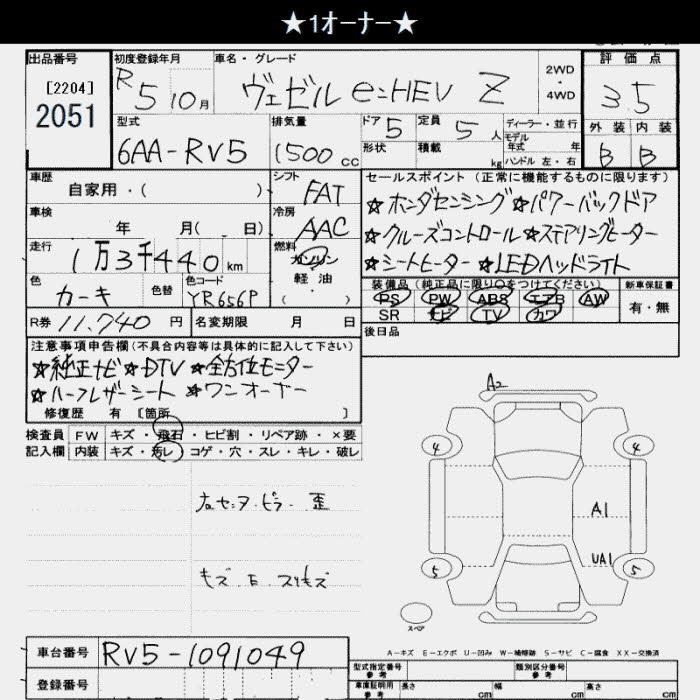 ★1オーナー★
出品番号
[2204]
2051
初度登録年月
R5 10月
車名・グレード
ヴェゼル e:HEV Z
2WD
・
4WD
評価点
3.5
型式
6AA-RV5
排気量
1500 cc
ドア 5
定員 5 人
ディーラー・並行
モデル
年式 年
形状
積載 kg
ハンドル 左・右
外装 内装
B B
車歴
自家用・( )
シフト
FAT
車検
年 月( 日)
冷房
AAC
走行
1万3千440km
燃料
ガソリン
軽油
( )
色
カーキ
色替
色コード
YR656P
R券 11,740 円
名変期限 月 日
セールスポイント(正常に機能するものに限ります)
★ホンダセンシング★パワーバックドア
★クルーズコントロール★ステアリングヒーター
★シートヒーター★LEDヘッドライト
装備品(純正品に限り○をつけてください)
新車保証書
PS PW ABS エアB AW
SR ナビ TV カワ
有・無
後日品
注意事項申告欄(不具合内容等は具体的に記入して下さい)
★純正ナビ★DTV★全方位モニター
★ハーフレザーシート★ワンオーナー
修復歴 有 [箇所 ]
検査員
記入欄
FW キズ・飛石・ヒビ割・リペア跡・×要
内装 キズ・汚レ・コゲ・穴・スレ・キレ・破レ
右センタピラー歪
キズ 스
A2
4 4
A1
UA1
5 5
スペア
A-キズ E-エクボ U-凹み W-補修跡 S-サビ C-腐食 XX-交換済
車台番号
RV5-1091049
登録番号
型式指定番号
参考
類別区分番号
参考
車庫証明用
参考
長さ cm
幅 cm
高さ cm